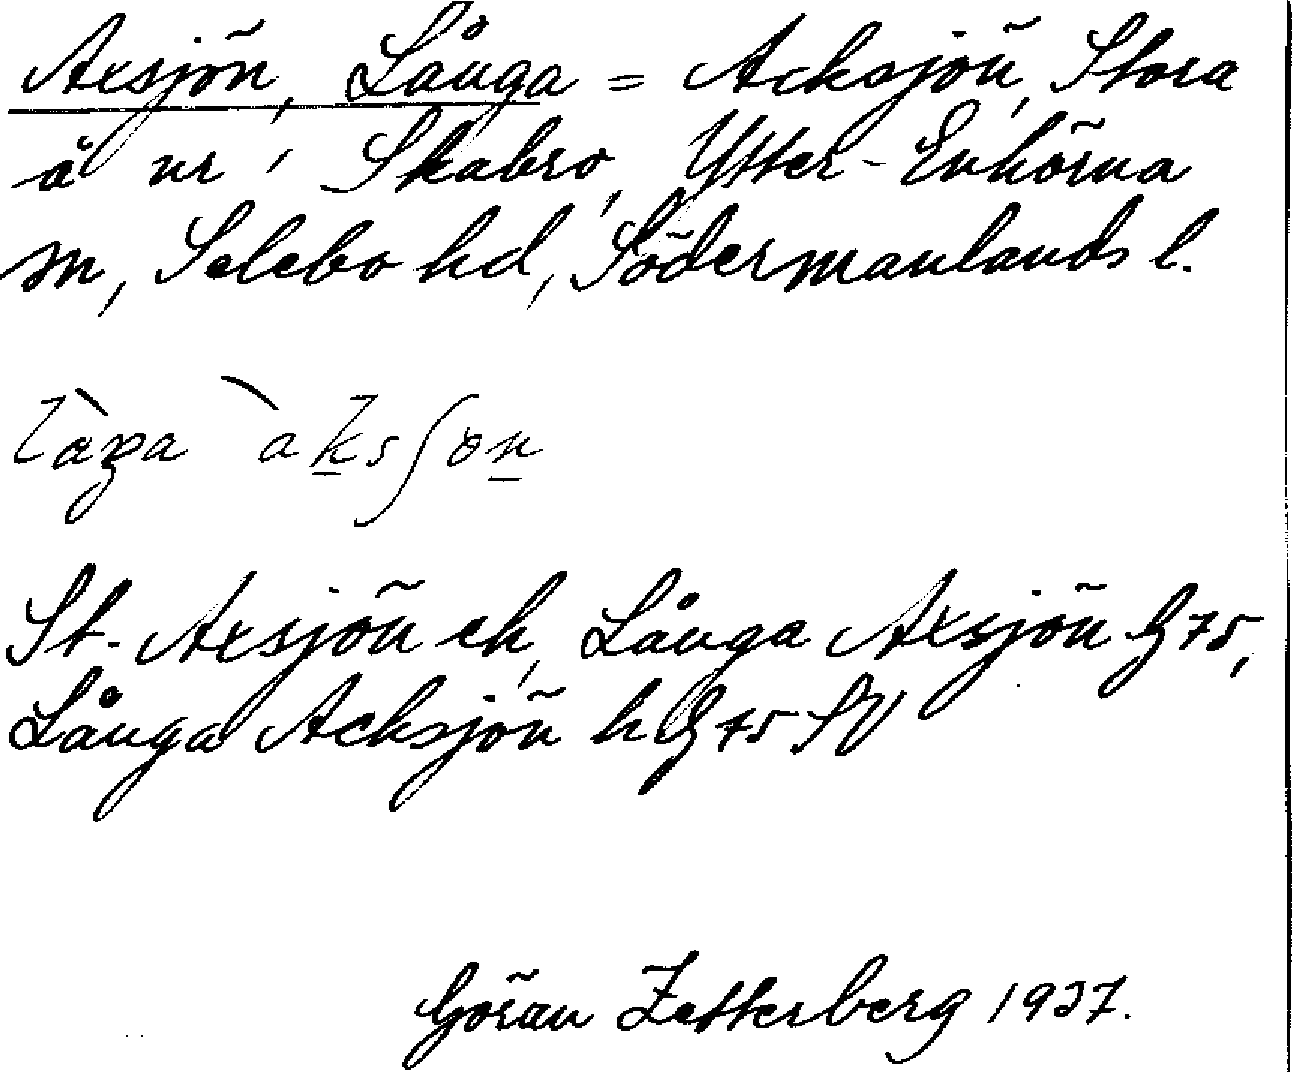 Axsjön, Långa = Acksjön, Stora
å nr 1 Skabro, Ytter-Enhörna
sn, Selebo hd, Södermanlands l.
låŋa `aksʃön
St. Axsjön ek, Långa Axsjön G 75,
Långa Acksjön h G 75 SV
Göran Zetterberg 1937.